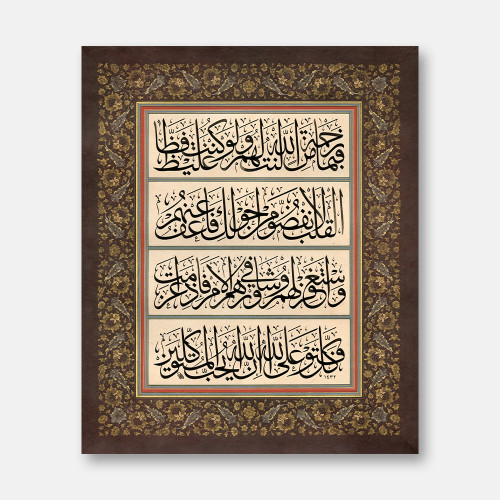 فبما رحمة من الله لنت لهم ولو كنت فظا غليظ
القلب لانفضوا من حولك فاعف عنهم
واستغفر لهم وشاورهم في الامر فاذا عزمت
فتوكل على الله ان الله يحب المتوكلين ١٤٣٢